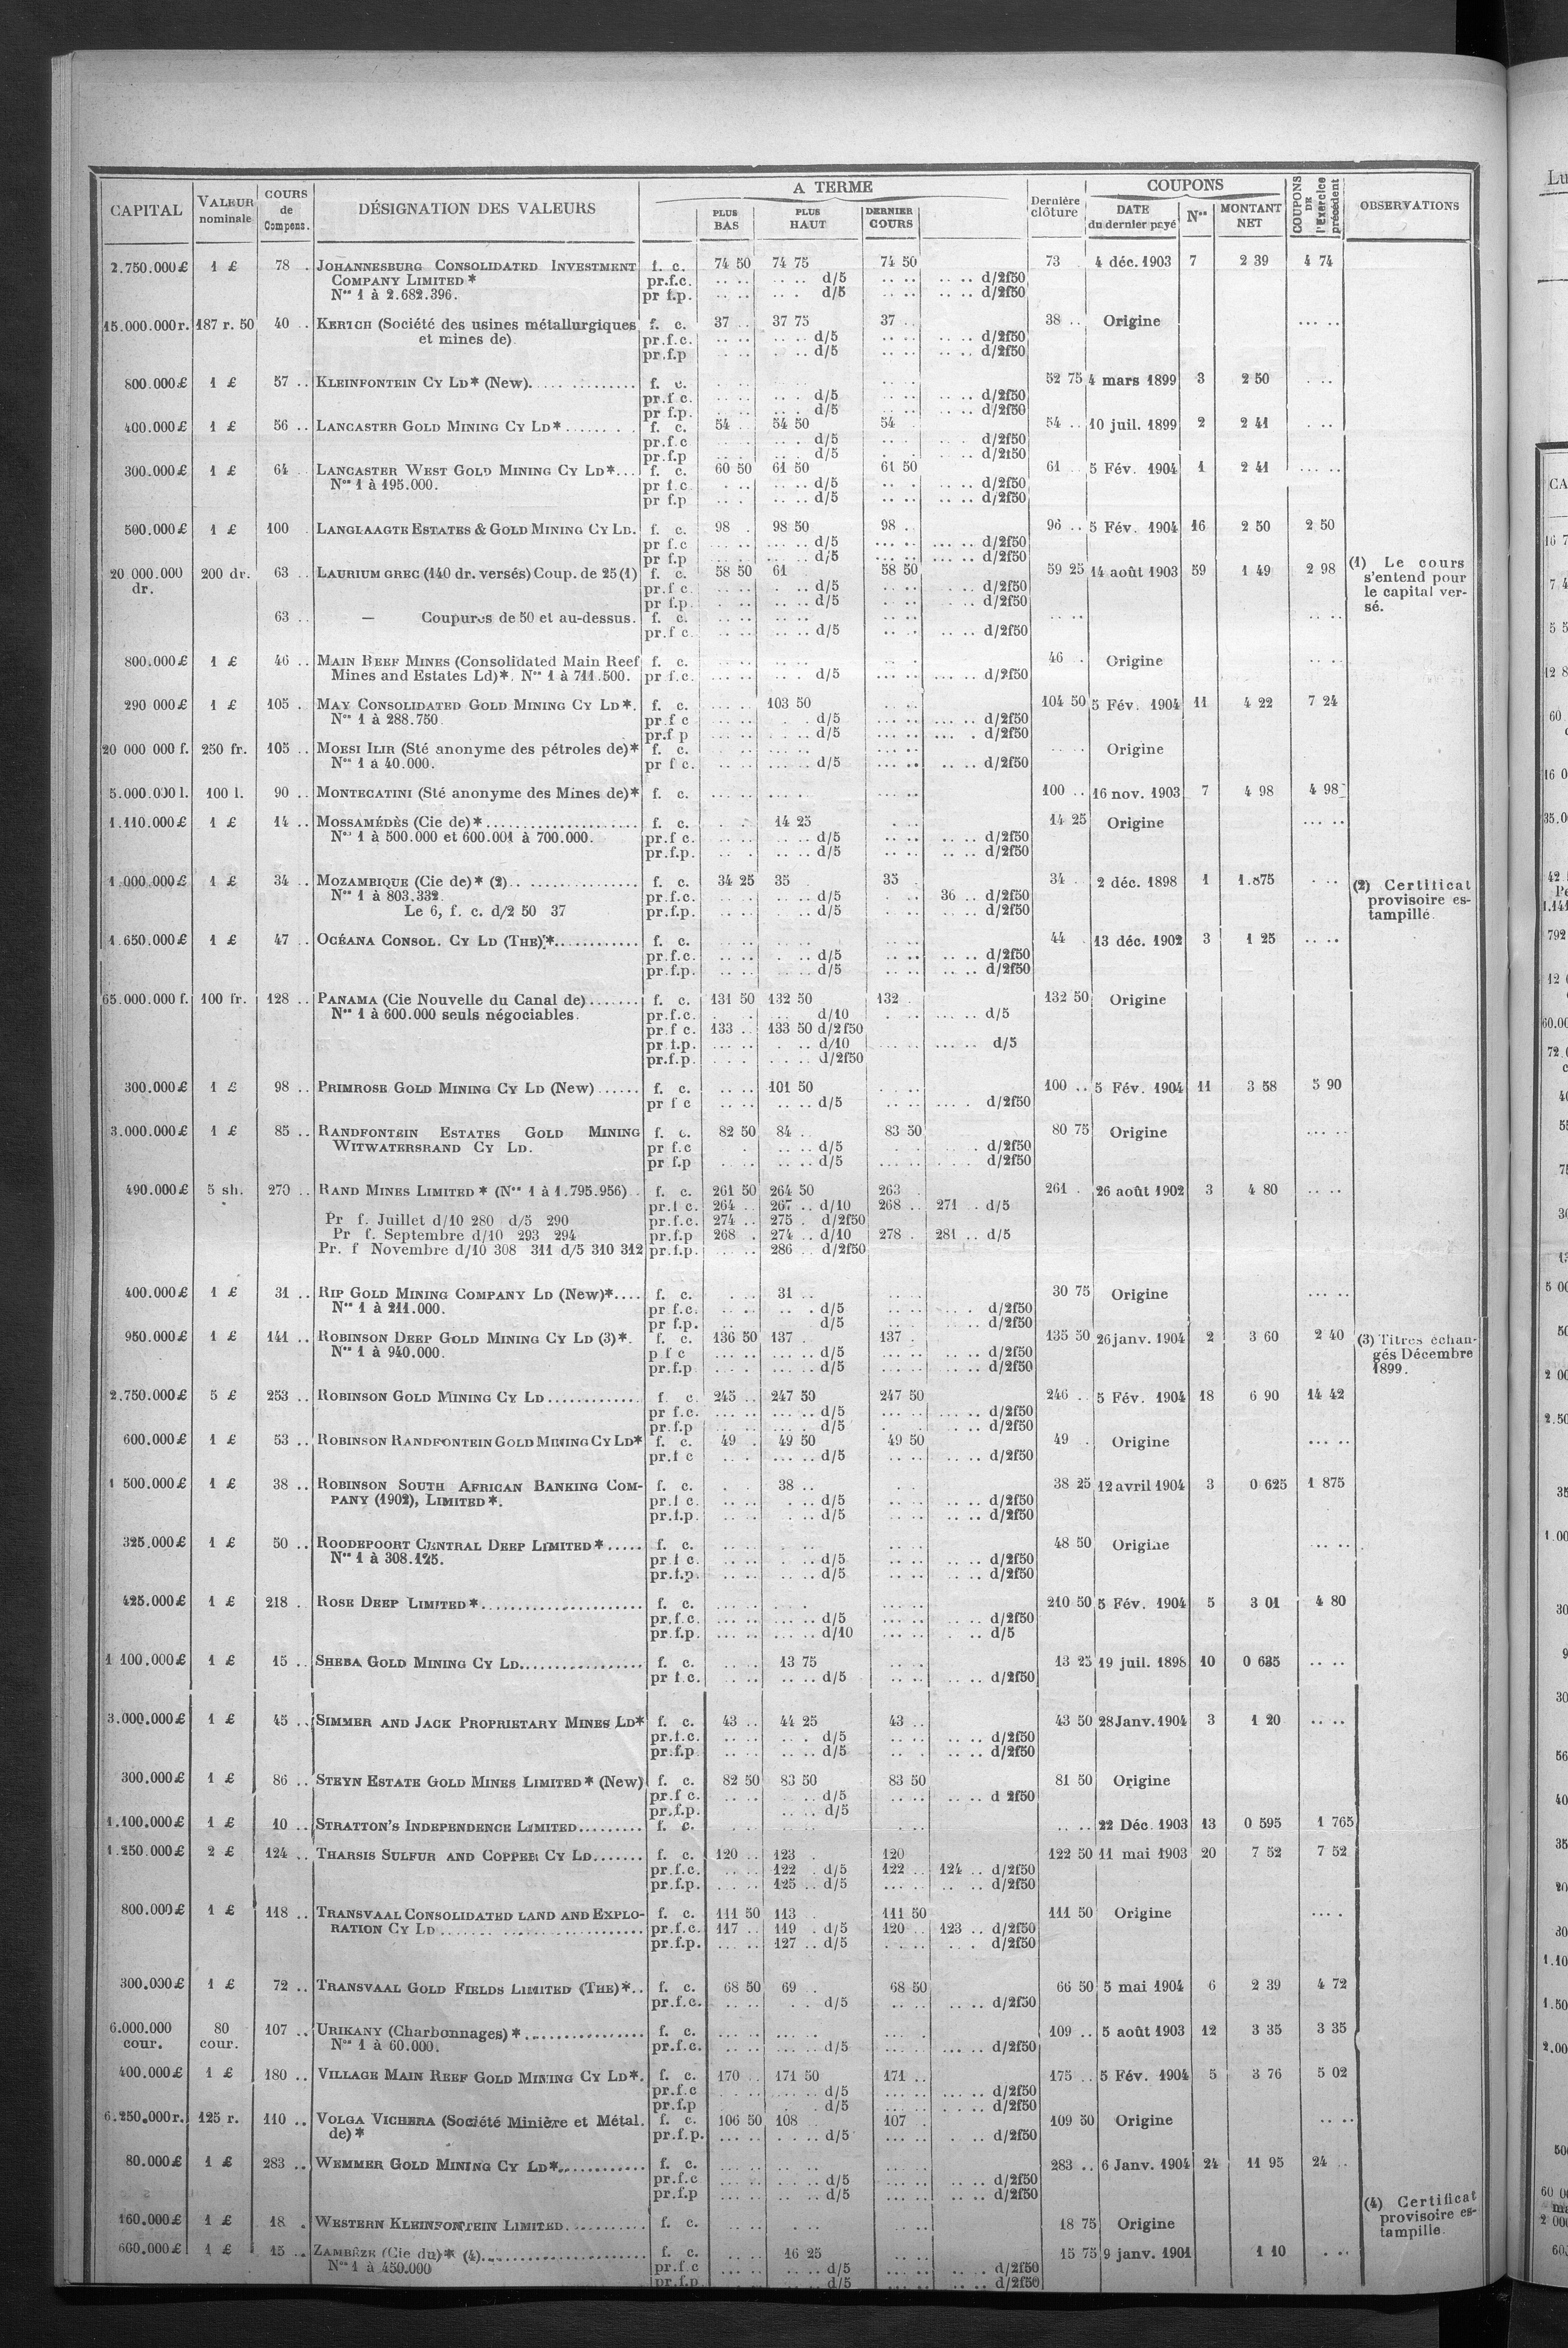 CAPITAL VALEUR nominale COURS de Compens. DÉSIGNATION DES VALEURS A TERME PLUS BAS PLUS HAUT DERNIER COURS Dernière clôture COUPONS DATE du dernier payé Nos MONTANT NET COUPONS DE l'Exercice précédent OBSERVATIONS
2.750.000£ 1 £ 78 . JOHANNESBURG CONSOLIDATED INVESTMENT f. c. 74 50 74 75 74 50 73 . 4 déc. 1903 7 2 39 4 74
COMPANY LIMITED* pr.f.c. .. .. .. .. d/5 .. .. .. .. d/2f50
Nos 1 à 2.682.396. pr f.p. .. .. .. . d/5 .. .. .. .. d/2f50
15.000.000r. 187 r. 50 40 .. KERTCH (Société des usines métallurgiques f. c. 37 .. 37 75 37 .. 38 .. Origine ... ..
et mines de). pr.f.c. .. .. .. .. d/5 .. .. .. .. d/2f50
pr.f.p . .. . .. d/5 .. .. .. .. d/2f50
800.000£ 1 £ 57 .. KLEINFONTEIN CY LD* (New). f. c. 52 75 4 mars 1899 3 2 50 . ..
pr.f c. d/5 d/2f50
pr f.p. d/5 d/2f50
400.000£ 1 £ 56 .. LANCASTER GOLD MINING CY LD* f. c. 54 .. 54 50 54 .. 54 .. 10 juil. 1899 2 2 41 . ..
pr.f.c d/5 d/2f50
pr.f.p d/5 d/2f50
300.000£ 1 £ 64 .. LANCASTER WEST GOLD MINING CY LD*... f. c. 60 50 61 50 61 50 61 .. 5 Fév. 1904 1 2 41 ... ..
Nos 1 à 195.000. pr f.c d/5 d/2f50
pr f.p d/5 d/2f50
500.000£ 1 £ 100 . LANGLAAGTE ESTATES & GOLD MINING CY LD. f. c. 98 . 98 50 98 . 96 .. 5 Fév. 1904 16 2 50 2 50
pr f.c d/5 d/2f50
pr f.p d/5 d/2f50
20 000.000 200 dr. 63 .. LAURIUM GREC (140 dr. versés) Coup. de 25 (1) f. c. 58 50 61 58 50 59 25 14 août 1903 59 1 49 2 98 (1) Le cours
dr. pr.f c d/5 d/2f50 s'entend pour
pr f.p. d/5 d/2f50 le capital ver-
63 .. — Coupures de 50 et au-dessus. f. c. sé.
pr.f c. d/5 d/2f50
800.000£ 1 £ 46 .. MAIN REEF MINES (Consolidated Main Reef f. c. 46 . Origine
Mines and Estates Ld)*. Nos 1 à 711.500. pr f.c. d/5 d/2f50
290 000£ 1 £ 105 . MAY CONSOLIDATED GOLD MINING CY LD*. f. c. 103 50 104 50 5 Fév. 1904 11 4 22 7 24
Nos 1 à 288.750. pr.f c d/5 d/2f50
pr.f p d/5 d/2f50
20 000 000 f. 250 fr. 105 .. MOESI ILIR (Sté anonyme des pétroles de)* f. c. Origine
Nos 1 à 40.000. pr f c. d/5 d/2f50
5.000.000 l. 100 l. 90 .. MONTECATINI (Sté anonyme des Mines de)* f. c. 100 .. 16 nov. 1903 7 4 98 4 98
1.110.000£ 1 £ 14 .. MOSSAMÉDÈS (Cie de)* f. c. 14 25 14 25 Origine
Nos 1 à 500.000 et 600.001 à 700.000. pr.f c. d/5 d/2f50
pr.f.p. d/5 d/2f50
1.000.000£ 1 £ 34 .. MOZAMBIQUE (Cie de)* (2) f. c. 34 25 35 35 34 . 2 déc. 1898 1 1.875 (2) Certificat
Nos 1 à 803.332. pr.f.c. d/5 36 .. d/2f50 provisoire es-
Le 6, f. c. d/2 50 37 pr.f.p. d/5 d/2f50 tampillé.
1.650.000£ 1 £ 47 .. OCÉANA CONSOL. CY LD (THE)* f. c. 44 . 13 déc. 1902 3 1 25
pr.f.c. d/5 d/2f50
pr.f.p. d/5 d/2f50
65.000.000 f. 100 fr. 128 .. PANAMA (Cie Nouvelle du Canal de) f. c. 131 50 132 50 132 . 132 50 Origine
Nos 1 à 600.000 seuls négociables. pr.f.c. d/10 d/5
pr.f c. 133 .. 133 50 d/2f50
pr f.p. d/10 d/5
pr.f.p. d/2f50
300.000£ 1 £ 98 .. PRIMROSE GOLD MINING CY LD (New) f. c. 101 50 100 .. 5 Fév. 1904 11 3 58 5 90
pr f c d/5 d/2f50
3.000.000£ 1 £ 85 .. RANDFONTEIN ESTATES GOLD MINING f. c. 82 50 84 .. 83 50 80 75 Origine
WITWATERSRAND CY LD. pr f.c d/5 d/2f50
pr f.p d/5 d/2f50
490.000£ 5 sh. 270 .. RAND MINES LIMITED * (Nos 1 à 1.795.956) f. c. 261 50 264 50 263 . 261 . 26 août 1902 3 4 80
pr.f c. 264 .. 267 .. d/10 268 .. 271 . d/5
Pr f. Juillet d/10 280 d/5 290 pr.f.c. 274 .. 275 . d/2f50
Pr f. Septembre d/10 293 294 pr.f.p 268 . 274 .. d/10 278 . 281 .. d/5
Pr. f Novembre d/10 308 311 d/5 310 312 pr.f.p. 286 .. d/2f50
400.000£ 1 £ 31 .. RIP GOLD MINING COMPANY LD (New)* f. c. 31 .. 30 75 Origine
Nos 1 à 211.000. pr f.c. d/5 d/2f50
pr f.p. d/5 d/2f50
950.000£ 1 £ 141 .. ROBINSON DEEP GOLD MINING CY LD (3)*. f. c. 136 50 137 . 137 . 135 50 26 janv. 1904 2 3 60 2 40 (3) Titres échan-
Nos 1 à 940.000. p f c d/5 d/2f50 gés Décembre
pr.f.p d/5 d/2f50 1899.
2.750.000£ 5 £ 253 .. ROBINSON GOLD MINING CY LD f. c. 245 .. 247 50 247 50 246 .. 5 Fév. 1904 18 6 90 14 42
pr f.c. d/5 d/2f50
pr.f.p d/5 d/2f50
600.000£ 1 £ 53 .. ROBINSON RANDFONTEIN GOLD MINING CY LD* f. c. 49 . 49 50 49 50 49 . Origine
pr.f c d/5 d/2f50
1 500.000£ 1 £ 38 .. ROBINSON SOUTH AFRICAN BANKING COM- f. c. 38 .. 38 25 12 avril 1904 3 0 625 1 875
PANY (1902), LIMITED*. pr.f c. d/5 d/2f50
pr.f.p. d/5 d/2f50
325.000£ 1 £ 50 .. ROODEPOORT CENTRAL DEEP LIMITED* f. c. 48 50 Origine
Nos 1 à 308.125. pr.f c. d/5 d/2f50
pr.f.p. d/5 d/2f50
425.000£ 1 £ 218 . ROSE DEEP LIMITED* f. c. 210 50 5 Fév. 1904 5 3 01 4 80
pr.f.c. d/5 d/2f50
pr.f.p. d/10 d/5
1 100.000£ 1 £ 15 .. SHEBA GOLD MINING CY LD f. c. 13 75 13 25 19 juil. 1898 10 0 635
pr f.c. d/5 d/2f50
3.000.000£ 1 £ 45 .. SIMMER AND JACK PROPRIETARY MINES LD* f. c. 43 .. 44 25 43 .. 43 50 28 Janv. 1904 3 1 20
pr.f.c. d/5 d/2f50
pr.f.p d/5 d/2f50
300.000£ 1 £ 86 .. STEYN ESTATE GOLD MINES LIMITED* (New) f. c. 82 50 83 50 83 50 81 50 Origine
pr.f c. d/5 d 2f50
pr.f.p. d/5
1.100.000£ 1 £ 10 .. STRATTON'S INDEPENDENCE LIMITED f. c. 22 Déc. 1903 13 0 595 1 765
1.250 000£ 2 £ 124 .. THARSIS SULFUR AND COPPER CY LD f. c. 120 .. 123 . 120 122 50 11 mai 1903 20 7 52 7 52
pr.f.c. 122 . d/5 122 .. 124 .. d/2f50
pr.f.p. 125 .. d/5 d/2f50
800.000£ 1 £ 118 .. TRANSVAAL CONSOLIDATED LAND AND EXPLO- f. c. 111 50 113 . 111 50 111 50 Origine
RATION CY LD pr.f.c. 117 .. 119 . d/5 120 .. 123 .. d/2f50
pr.f.p. 127 .. d/5 d/2f50
300.000£ 1 £ 72 .. TRANSVAAL GOLD FIELDS LIMITED (THE)*.. f. c. 68 50 69 . 68 50 66 50 5 mai 1904 6 2 39 4 72
pr.f.c. d/5 d/2f50
6.000.000 80 107 .. URIKANY (Charbonnages)* f. c. 109 .. 5 août 1903 12 3 35 3 35
cour. cour. Nos 1 à 60.000. pr.f.c. d/5 d/2f50
400.000£ 1 £ 180 .. VILLAGE MAIN REEF GOLD MINING CY LD*. f. c. 170 .. 171 50 171 .. 175 .. 5 Fév. 1904 5 3 76 5 02
pr.f.c d/5 d/2f50
pr.f.p d/5 d/2f50
6.250.000r. 125 r. 110 .. VOLGA VICHERA (Société Minière et Métal. f. c. 106 50 108 107 . 109 50 Origine
de)* pr.f.p. d/5 d/2f50
80.000£ 1 £ 283 .. WEMMER GOLD MINING CY LD* f. c. 283 .. 6 Janv. 1904 24 11 95 24 ..
pr.f.c d/5 d/2f50
pr.f.p d/5 d/2f50 (4) Certificat
160.000£ 1 £ 18 . WESTERN KLEINFONTEIN LIMITED f. c. 18 75 Origine provisoire es-
tampillé.
600.000£ 1 £ 15 .. ZAMBÈZE (Cie du)* (4) f. c. 16 25 15 75 9 janv. 1901 1 10
Nos 1 à 450.000 pr.f.c d/5 d/2f50
pr.f.p d/5 d/2f50